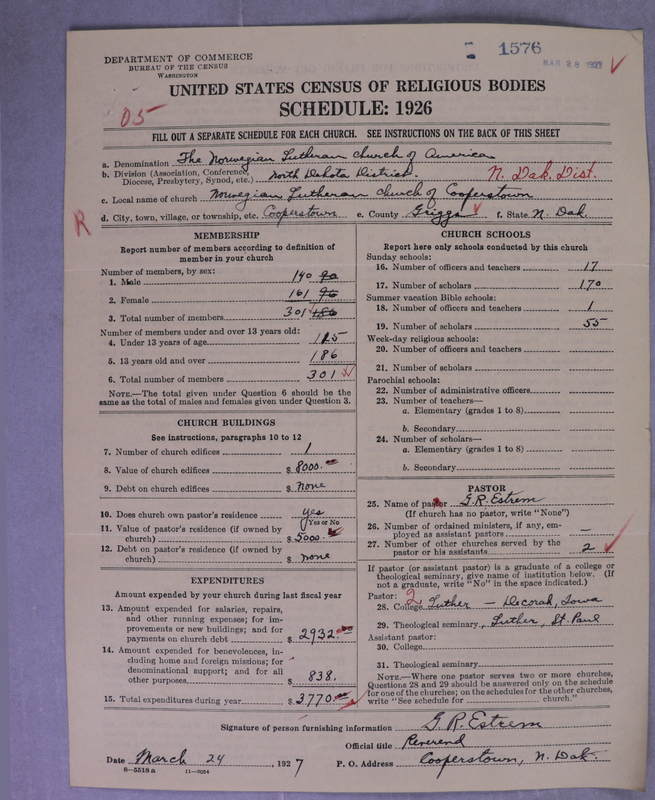 1576
MAR 28 1927
DEPARTMENT OF COMMERCE
BUREAU OF THE CENSUS
WASHINGTON
UNITED STATES CENSUS OF RELIGIOUS BODIES
SCHEDULE: 1926
05
FILL OUT A SEPARATE SCHEDULE FOR EACH CHURCH. SEE INSTRUCTIONS ON THE BACK OF THIS SHEET
a. Denomination The Norwegian Lutheran Church of America
b. Division (Association, Conference, Diocese, Presbytery, Synod, etc.) North Dakota District. N. Dak. Dist.
c. Local name of church Norwegian Lutheran Church of Cooperstown
d. City, town, village, or township, etc. Cooperstown e. County Griggs f. State N. Dak.
R
MEMBERSHIP
Report number of members according to definition of
member in your church
Number of members, by sex:
1. Male 140 90
2. Female 161 96
3. Total number of members 301 186
Number of members under and over 13 years old:
4. Under 13 years of age 115
5. 13 years old and over 186
6. Total number of members 301
NOTE.—The total given under Question 6 should be the
same as the total of males and females given under Question 3.
CHURCH BUILDINGS
See instructions, paragraphs 10 to 12
7. Number of church edifices 1
8. Value of church edifices $ 8000.
9. Debt on church edifices $ none
10. Does church own pastor's residence yes
Yes or No
11. Value of pastor's residence (if owned by
church) $ 5000
12. Debt on pastor's residence (if owned by
church) $ none
EXPENDITURES
Amount expended by your church during last fiscal year
13. Amount expended for salaries, repairs,
and other running expenses; for im-
provements or new buildings; and for
payments on church debt $ 2932.
14. Amount expended for benevolences, in-
cluding home and foreign missions; for
denominational support; and for all
other purposes $ 838.
15. Total expenditures during year $ 3770.
CHURCH SCHOOLS
Report here only schools conducted by this church
Sunday schools:
16. Number of officers and teachers 17
17. Number of scholars 170
Summer vacation Bible schools:
18. Number of officers and teachers 1
19. Number of scholars 55
Week-day religious schools:
20. Number of officers and teachers
21. Number of scholars
Parochial schools:
22. Number of administrative officers
23. Number of teachers—
a. Elementary (grades 1 to 8)
b. Secondary
24. Number of scholars—
a. Elementary (grades 1 to 8)
b. Secondary
PASTOR
25. Name of pastor G. R. Estrem
(If church has no pastor, write "None")
26. Number of ordained ministers, if any, em-
ployed as assistant pastors –
27. Number of other churches served by the
pastor or his assistants 2
If pastor (or assistant pastor) is a graduate of a college or
theological seminary, give name of institution below. (If
not a graduate, write "No" in the space indicated.)
Pastor: 2
28. College Luther – Decorah, Iowa
29. Theological seminary Luther, St. Paul
Assistant pastor:
30. College
31. Theological seminary
NOTE.—Where one pastor serves two or more churches,
Questions 28 and 29 should be answered only on the schedule
for one of the churches; on the schedules for the other churches,
write "See schedule for church."
Signature of person furnishing information G. R. Estrem
Official title Reverend
Date March 24, 1927 P. O. Address Cooperstown, N. Dak.
8—5518 a 11—9054